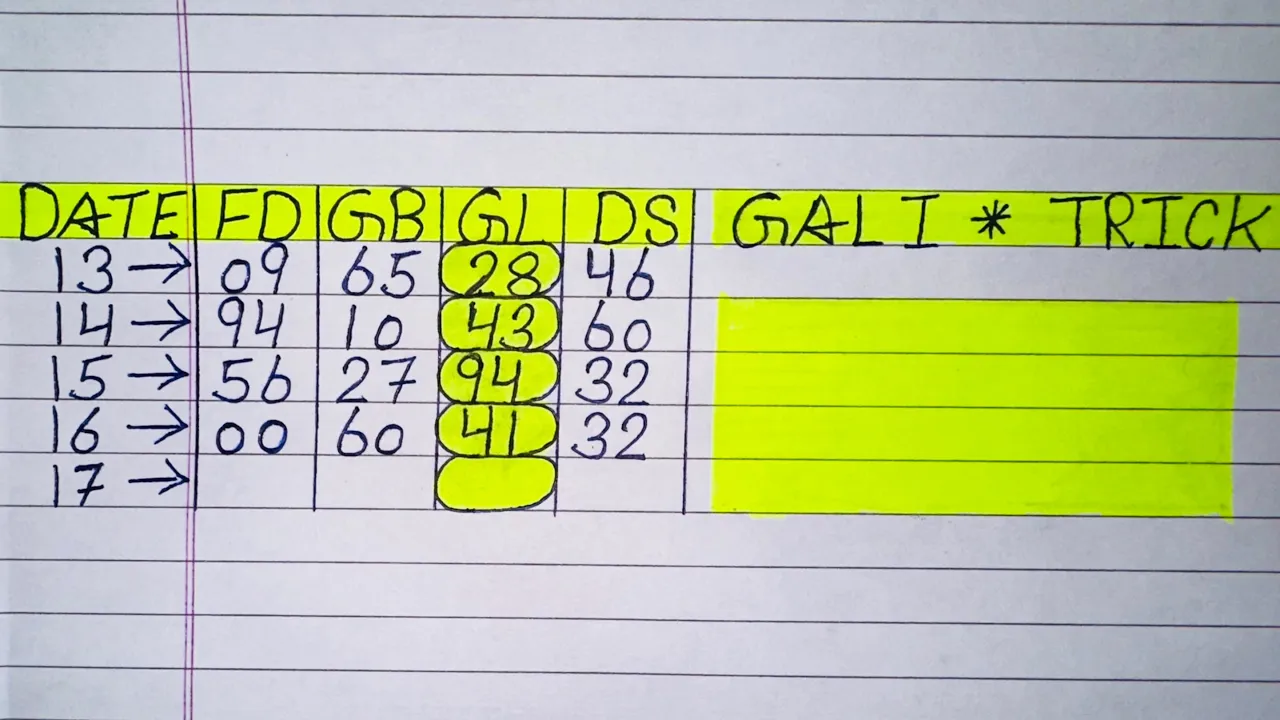 DATE FD GB GL DS GALI * TRICK
13 → 09 65 28 46
14 → 94 10 43 60
15 → 56 27 94 32
16 → 00 60 41 32
17 →